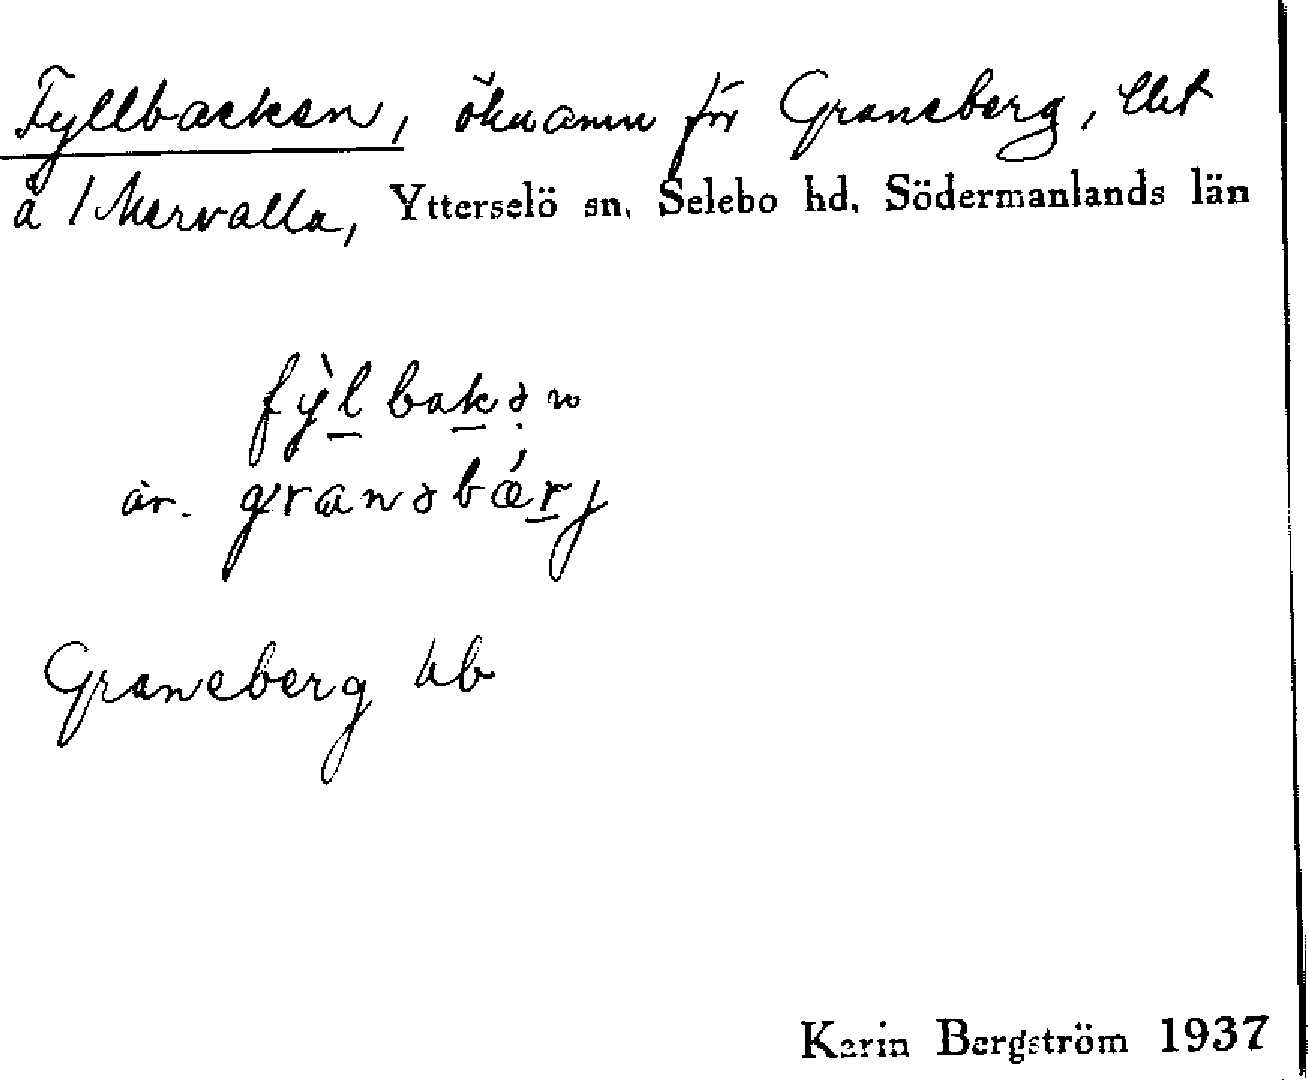 Fyllbacken, öknamn för Graneberg, lht
å 1 Mervalla, Ytterselö sn. Selebo hd. Södermanlands län
fỳlbakən
är. granəbǽrj
Graneberg ub
Karin Bergström 1937